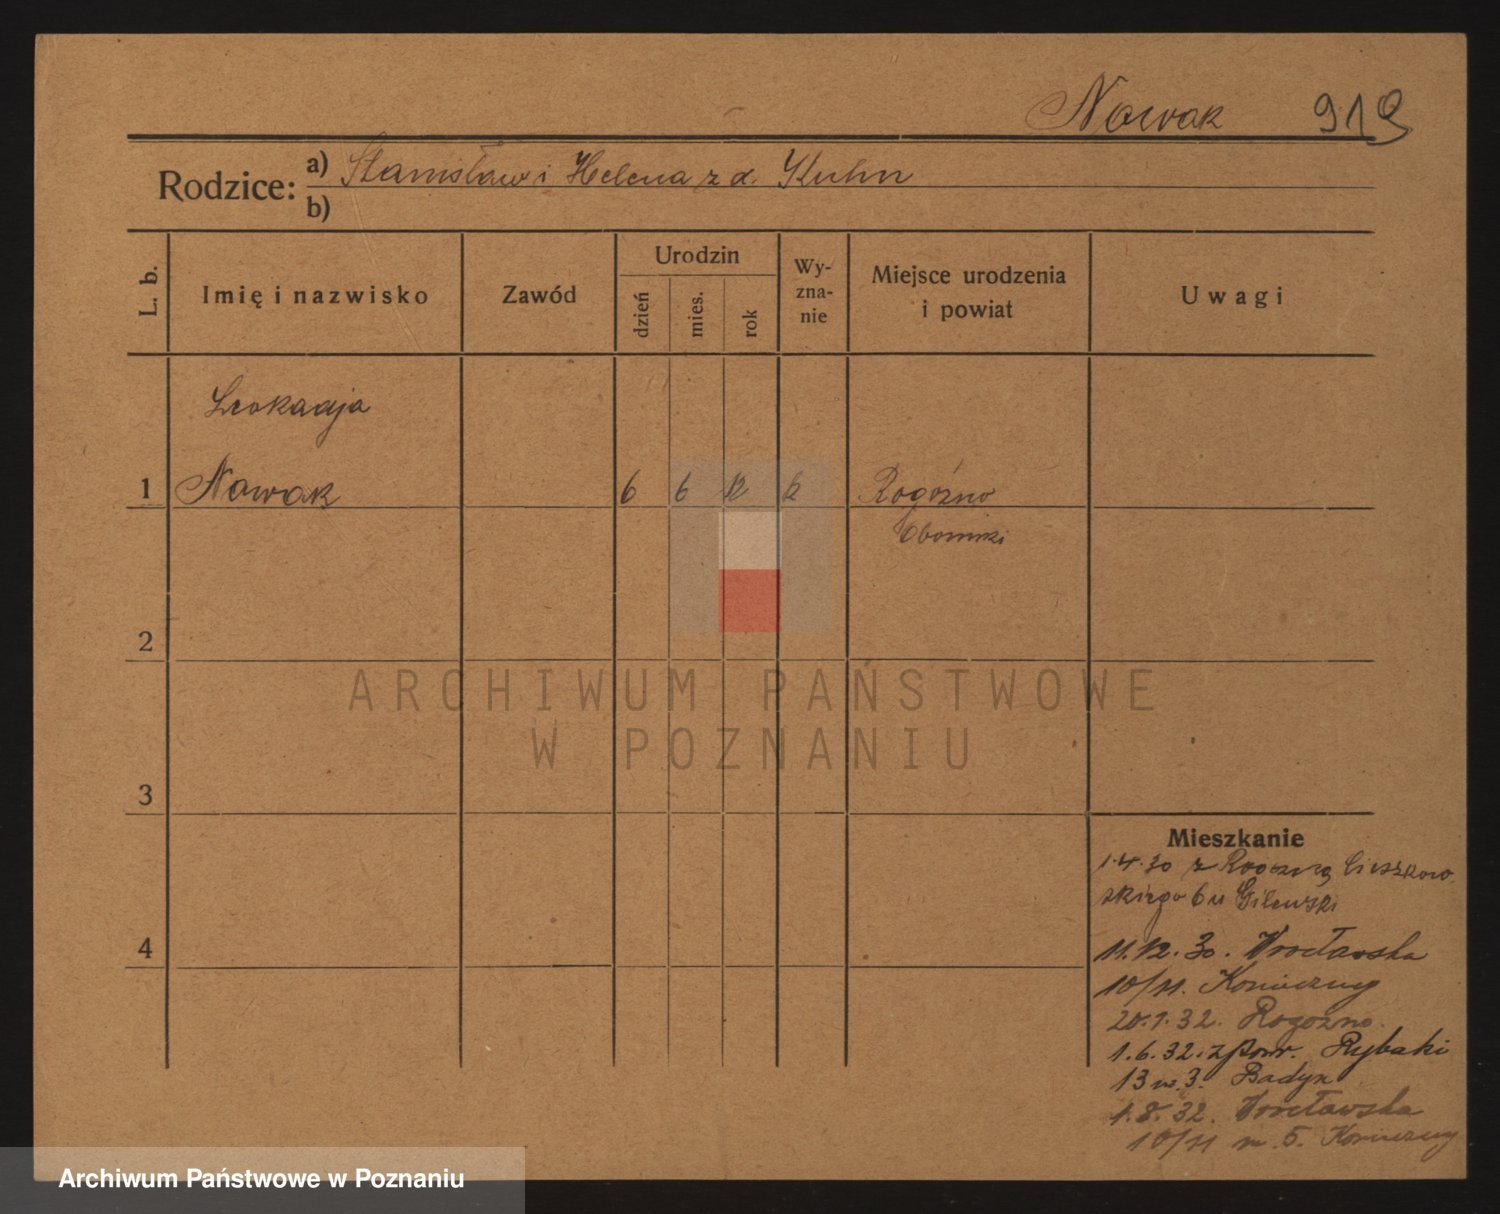 Nowak 919
Rodzice:
a) Stanisław i Helena z d. Kuhn
b)
L. b.
Imię i nazwisko
Zawód
Urodzin
dzień
mies.
rok
Wy-
zna-
nie
Miejsce urodzenia
i powiat
Uwagi
Leokadja
1 Nowak 6 6 12 k Rogóźno
Oborniki
2
3
4
ARCHIWUM PAŃSTWOWE
W POZNANIU
Mieszkanie
1.4.30 z Rogoźna Cieszkow-
skiego 6 u Gilewski
11.12.30. Wrocławska
10/11. Konieczny
20.1.32. Rogoźno.
1.6.32. z pow. Rybaki
13 m. 3. Badyn
1.8.32. Wrocławska
10/11 m. 5. Konieczny
Archiwum Państwowe w Poznaniu